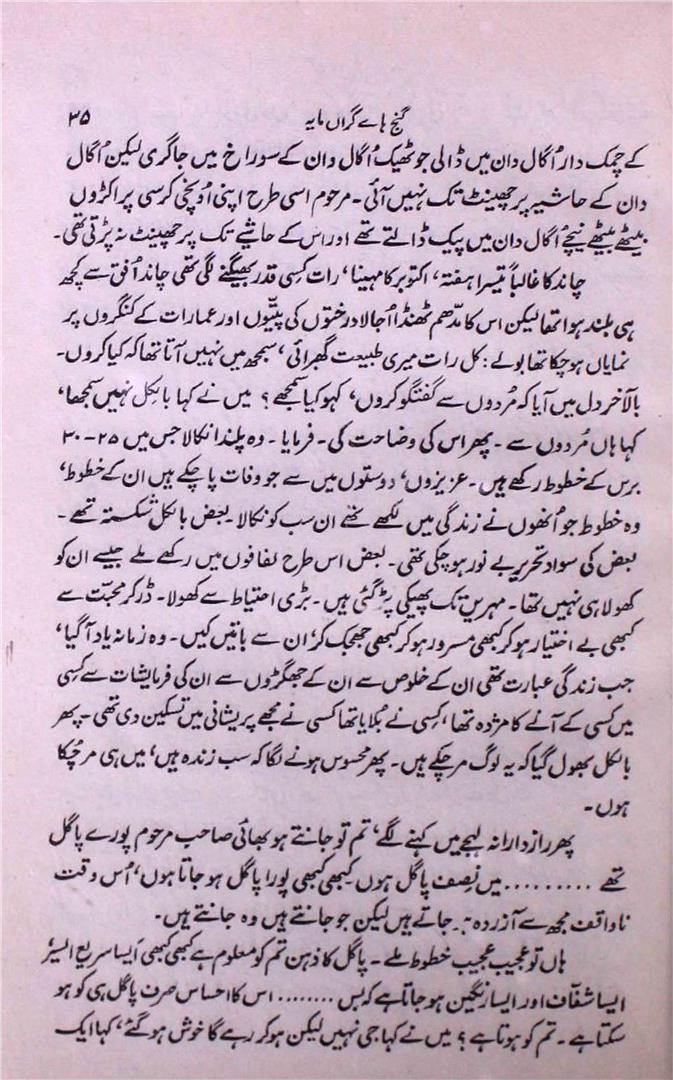 گنج ہائے گراں مایہ ۳۵
کے چمک دار اُگال دان میں ڈالی جو ٹھیک اُگال دان کے سوراخ میں جا گری لیکن اُگال
دان کے حاشیہ پر چھینٹ تک نہیں آئی۔ مرحوم اسی طرح اپنی اُونچی کرسی پر اکڑوں
بیٹھے بیٹھے نیچے اُگال دان میں پیک ڈالتے تھے اور اس کے حاشیے تک پر چھینٹ نہ پڑتی تھی۔
چاند کا غالباً تیسرا ہفتہ، اکتوبر کا مہینا، رات کسی قدر بھیگنے لگی تھی چاند اُفق سے کچھ
ہی بلند ہوا تھا لیکن اس کا مدّھم ٹھنڈا اُجالا درختوں کی پتیّوں اور عمارات کے کنگروں پر
نمایاں ہو چکا تھا بولے: کل رات میری طبیعت گھبرائی، سمجھ میں نہیں آتا تھا کہ کیا کروں۔
بالآخر دل میں آیا کہ مُردوں سے گفتگو کروں، کہو کیا سمجھے؟ میں نے کہا بالکل نہیں سمجھا،
کہا ہاں مُردوں سے۔ پھر اس کی وضاحت کی۔ فرمایا۔ وہ پلندا نکالا جس میں ۲۵-۳۰
برس کے خطوط رکھے ہیں۔ عزیزوں، دوستوں میں سے جو وفات پا چکے ہیں ان کے خطوط،
وہ خطوط جو اُنھوں نے زندگی میں لکھے تھے ان سب کو نکالا۔ بعض بالکل شکستہ تھے۔
بعض کی سوادِ تحریر بے نور ہو چکی تھی۔ بعض اس طرح لفافوں میں رکھے ملے جیسے ان کو
کھولا ہی نہیں تھا۔ مہریں تک پھیکی پڑ گئی ہیں۔ بڑی احتیاط سے کھولا۔ ڈر کر محبّت سے
کبھی بے اختیار ہو کر کبھی مسرور ہو کر کبھی جھجک کر، ان سے باتیں کیں۔ وہ زمانہ یاد آ گیا،
جب زندگی عبارت تھی ان کے خلوص سے ان کے جھگڑوں سے ان کی فرمایشات سے کسی
میں کسی کے آنے کا مژدہ تھا، کسی نے بُلایا تھا کسی نے مجھے پریشانی میں تسکین دی تھی۔ پھر
بالکل بھول گیا کہ یہ لوگ مر چکے ہیں۔ پھر محسوس ہونے لگا کہ سب زندہ ہیں، میں ہی مر چُکا
ہوں۔
پھر رازدارانہ لہجے میں کہنے لگے، تم تو جانتے ہو بھائی صاحب مرحوم پورے پاگل
تھے ......... میں نصف پاگل ہوں کبھی کبھی پُورا پاگل ہو جاتا ہوں، اُس وقت
ناواقف مجھ سے آزردہ ہو جاتے ہیں لیکن جو جانتے ہیں وہ جانتے ہیں۔
ہاں تو عجیب عجیب خطوط ملے۔ پاگل کا ذہن تم کو معلوم ہے کبھی کبھی ایسا سریع السیر
ایسا شفّاف اور ایسا رنگین ہو جاتا ہے کہ بس ........ اس کا احساس صرف پاگل ہی کو ہو
سکتا ہے۔ تم کو ہوتا ہے؟ میں نے کہا جی نہیں لیکن ہو کر رہے گا خوش ہو گئے، کہا ایک